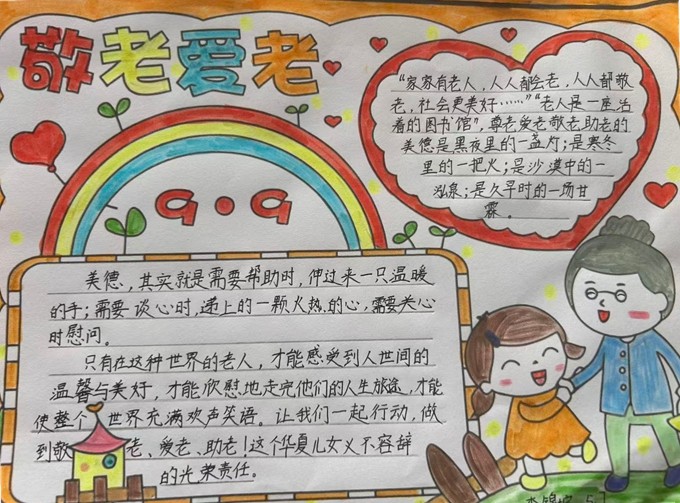 敬老爱老
9·9
“家家有老人，人人都会老，人人都敬
老，社会更美好……”“老人是一座活
着的图书馆”，尊老爱老敬老助老的
美德是黑夜里的一盏灯；是寒冬
里的一把火；是沙漠中的一
泓泉；是久旱时的一场甘
霖。
美德，其实就是需要帮助时，伸过来一只温暖
的手；需要谈心时，递上的一颗火热的心，需要关心
时慰问。
只有在这种世界的老人，才能感受到人世间的
温馨与美好，才能欣慰地走完他们的人生旅途，才能
使整个世界充满欢声笑语。让我们一起行动，做
到敬老、爱老、助老！这个华夏儿女义不容辞
的光荣责任。